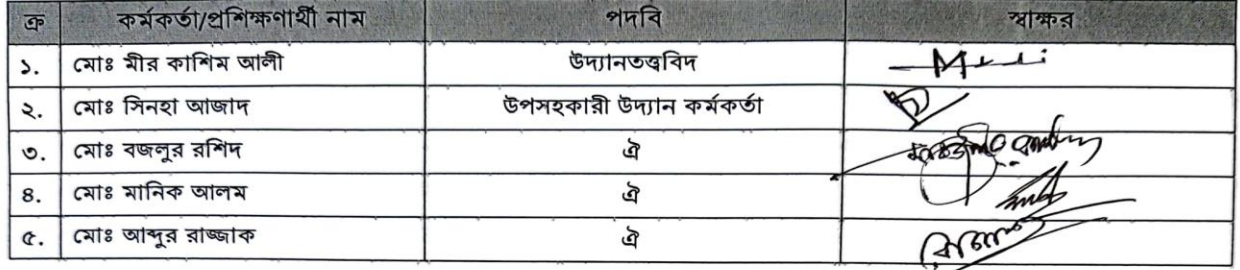 ক্র কর্মকর্তা/প্রশিক্ষণার্থী নাম পদবি স্বাক্ষর
১. মোঃ মীর কাশিম আলী উদ্যানতত্ত্ববিদ
২. মোঃ সিনহা আজাদ উপসহকারী উদ্যান কর্মকর্তা
৩. মোঃ বজলুর রশিদ ঐ
৪. মোঃ মানিক আলম ঐ
৫. মোঃ আব্দুর রাজ্জাক ঐ